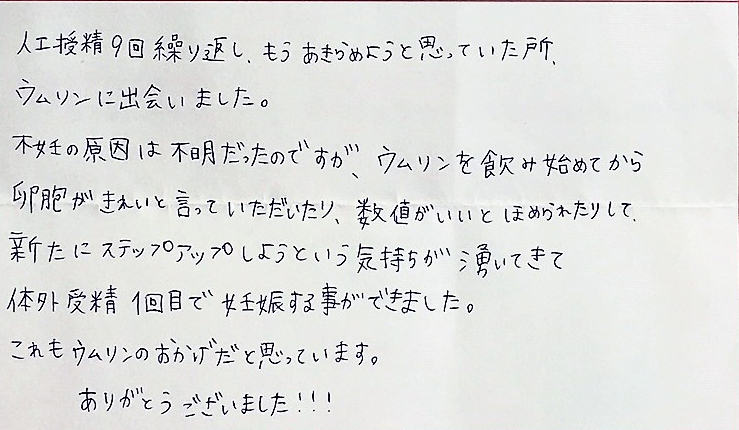 人工授精9回繰り返し、もうあきらめようと思っていた所、
ウムリンに出会いました。
不妊の原因は不明だったのですが、ウムリンを飲み始めてから
卵胞がきれいと言っていただいたり、数値がいいとほめられたりして、
新たにステップアップしようという気持ちが湧いてきて
体外受精1回目で妊娠する事ができました。
これもウムリンのおかげだと思っています。
ありがとうございました!!!